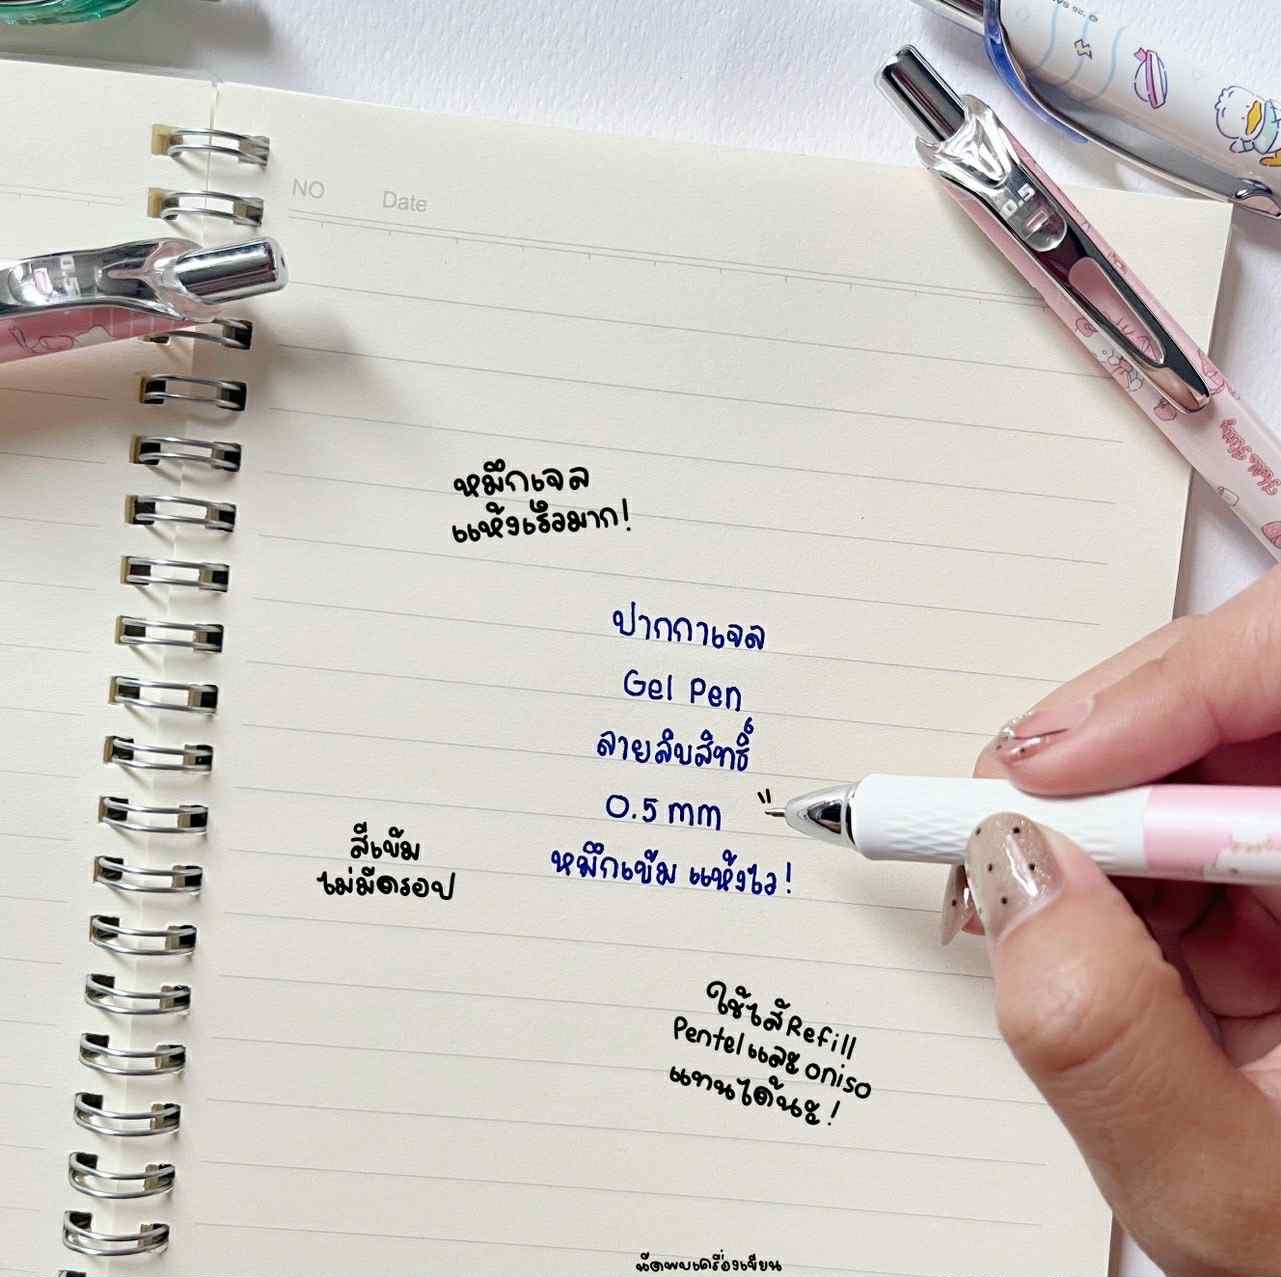 NO Date
0.5
หมึกเจล
แห้งเร็วมาก!
ปากกาเจล
Gel Pen
ลายลิขสิทธิ์
0.5 mm
หมึกเข้ม แห้งไว!
สีเข้ม
ไม่มีดรอป
ใช้ไส้Refill
Pentelและoniso
แทนได้นะ!
นัดพบเครื่องเขียน